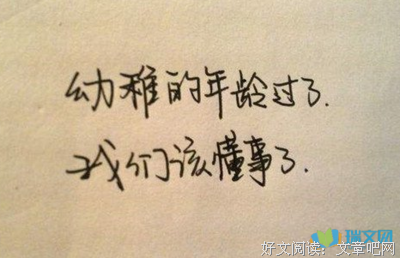 幼稚的年龄过了.
我们该懂事了.
瑞文网
好文阅读：文章吧网